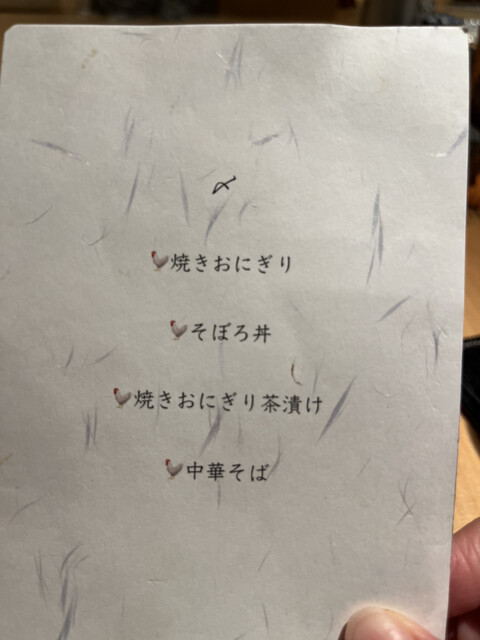 〆
🐓焼きおにぎり
🐓そぼろ丼
🐓焼きおにぎり茶漬け
🐓中華そば